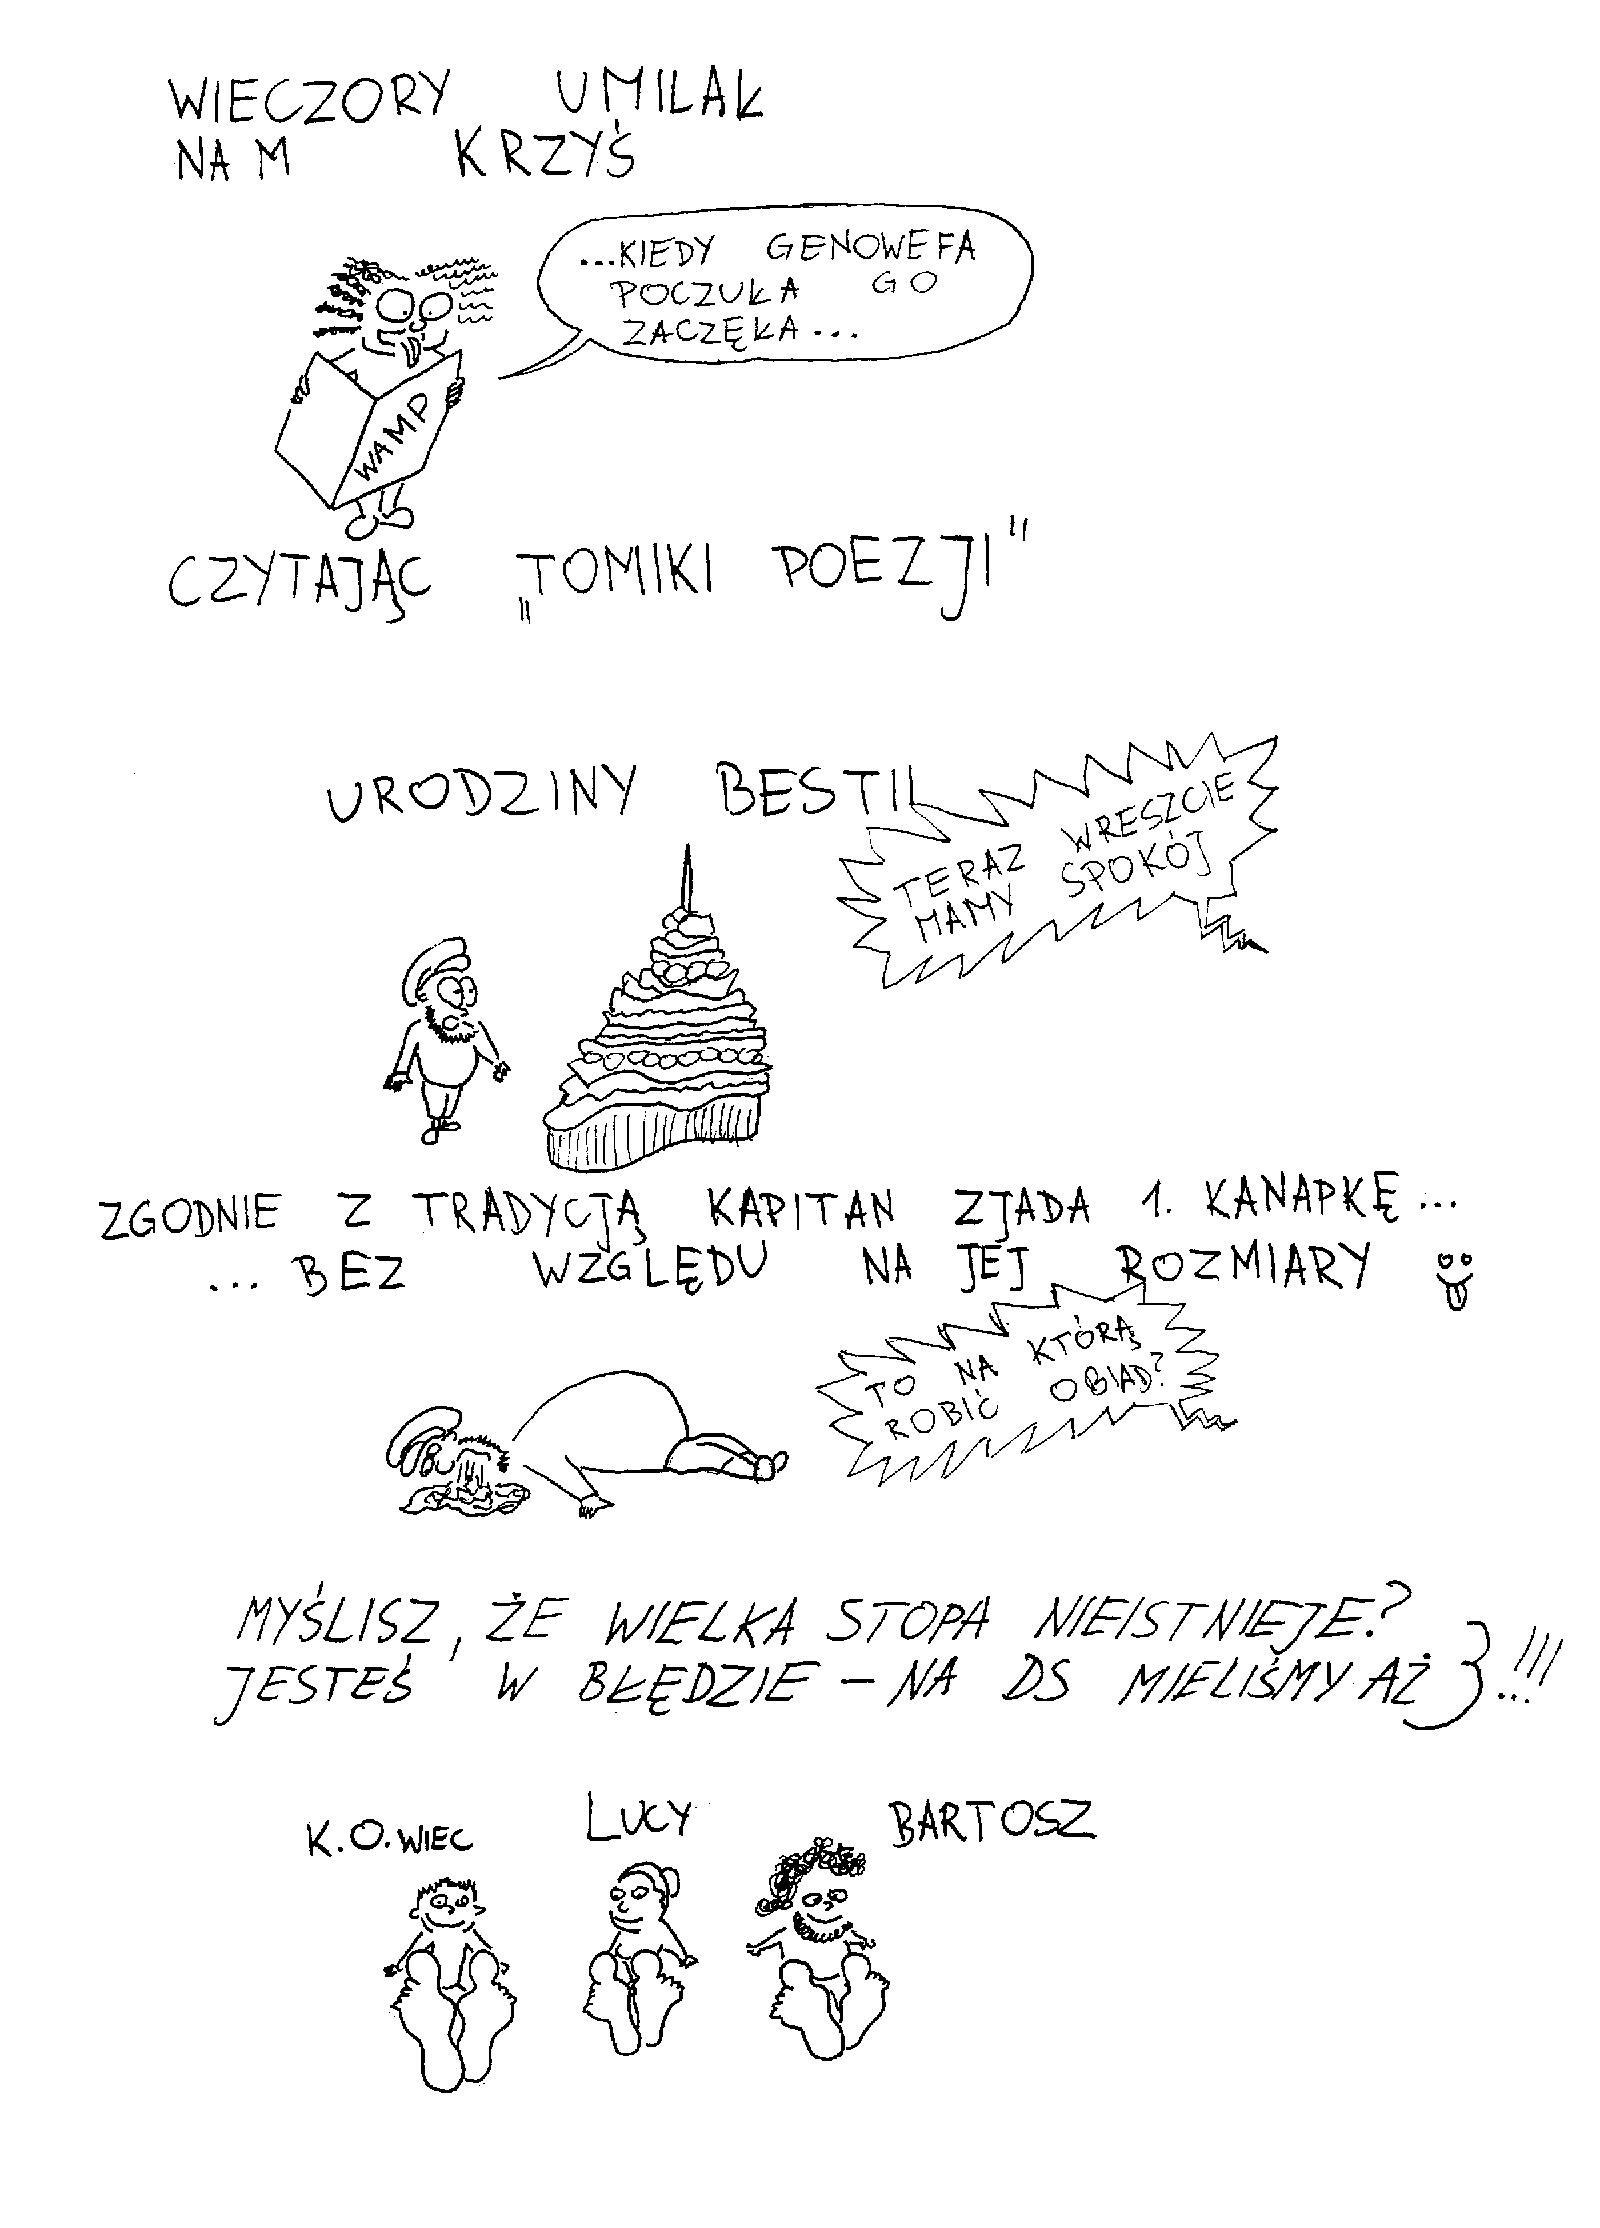 WIECZORY UMILAŁ
NAM KRZYŚ
...KIEDY GENOWEFA
POCZUŁA GO
ZACZĘŁA...
WAMP
CZYTAJĄC „TOMIKI POEZJI"
URODZINY BESTII
TERAZ WRESZCIE
MAMY SPOKÓJ
ZGODNIE Z TRADYCJĄ KAPITAN ZJADA 1. KANAPKĘ...
...BEZ WZGLĘDU NA JEJ ROZMIARY
TO NA KTÓRĄ
ROBIĆ OBIAD?
MYŚLISZ, ŻE WIELKA STOPA NIEISTNIEJE?
JESTEŚ W BŁĘDZIE – NA DS MIELIŚMY AŻ 3!!!
K.O.WIEC
LUCY
BARTOSZ